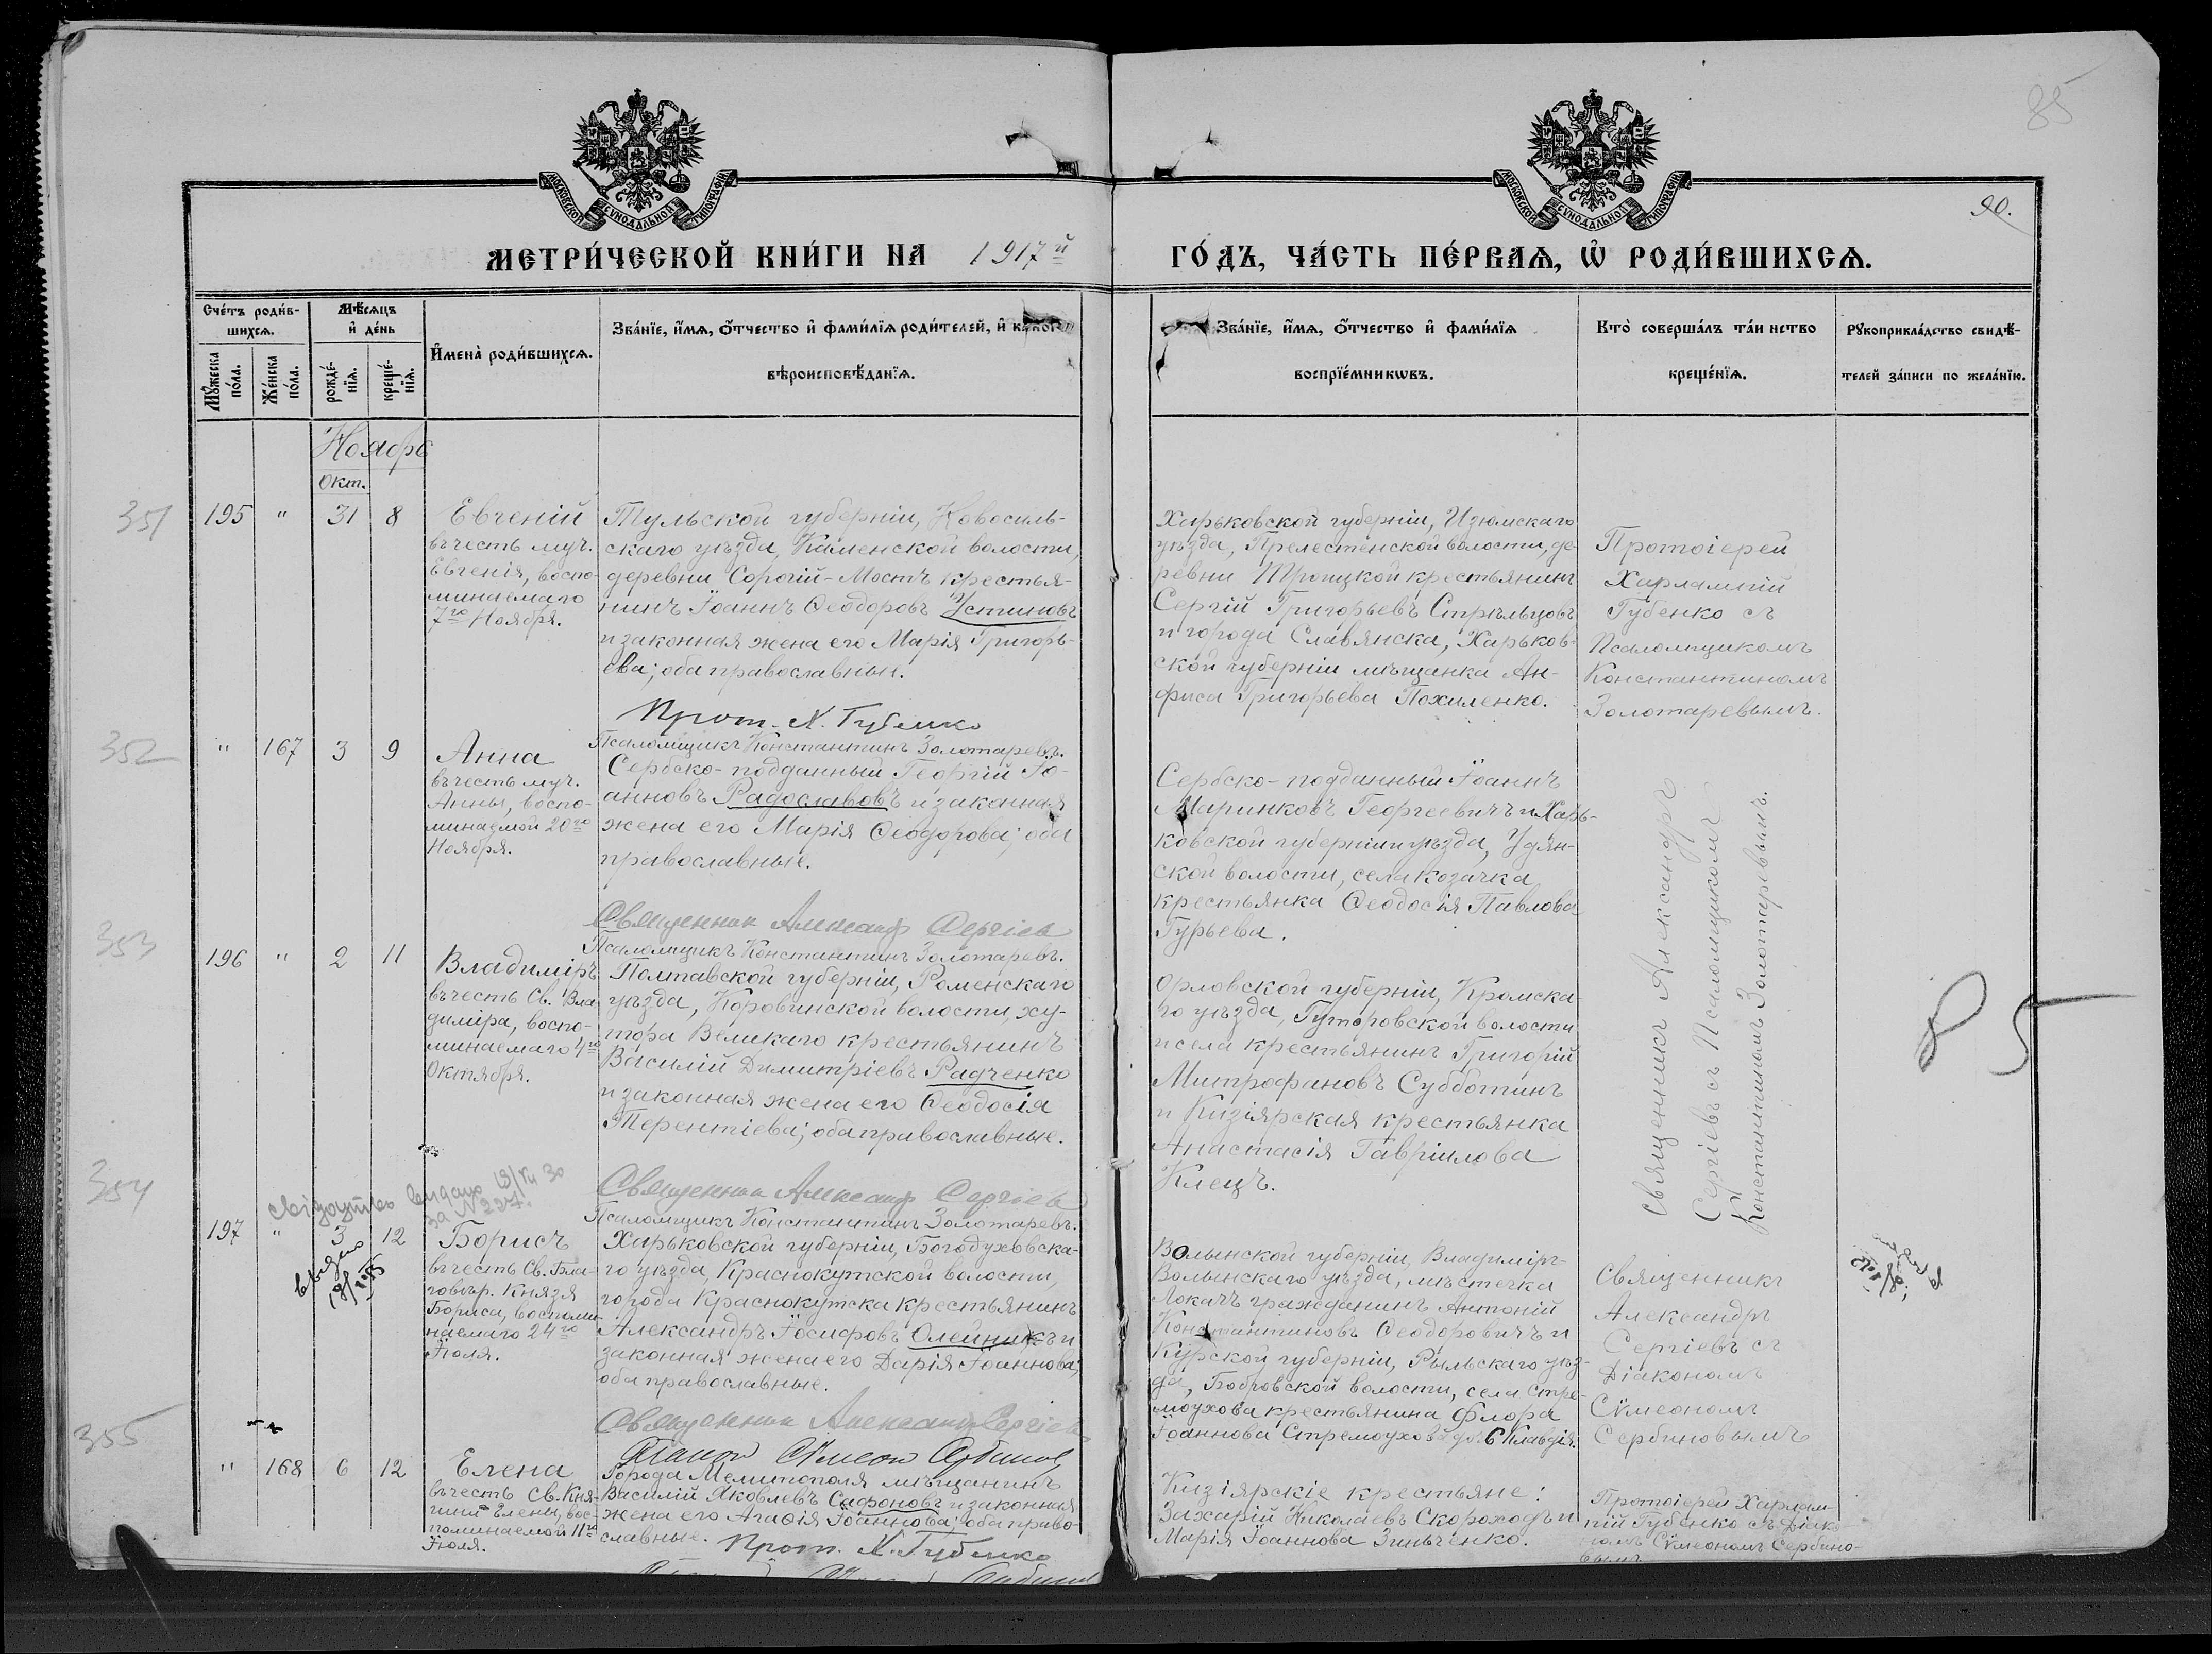 85
90.
МОСКОВСКОЙ СѴНОДАЛЬНОЙ ТИПОГРАФІИ
МОСКОВСКОЙ СѴНОДАЛЬНОЙ ТИПОГРАФІИ
МЕТРИ́ЧЕСКОЙ КНИ́ГИ НА 1917й
ГО́ДЪ, ЧА́СТЬ ПЕ́РВАѦ, Ѡ҆ РОДИ́ВШИХСѦ.
Сче́тъ роди́в-
шихсѧ.
Мꙋ́жеска
по́ла.
Же́нска
по́ла.
Мѣ́сѧцъ
и҆ де́нь
рожде́-
нїѧ.
креще́-
нїѧ.
И҆мена̀ роди́вшихсѧ.
Зва́нїе, и҆́мѧ, ѻ҆́тчество и҆ фами́лїѧ роди́телей, и҆
вѣроисповѣ́данїѧ.
Зва́нїе, и҆́мѧ, ѻ҆́тчество и҆ фами́лїѧ
воспрїе́мникѡвъ.
Кто̀ соверша́лъ та́инство
креще́нїѧ.
Рꙋкоприкла́дство свидѣ́-
телей за́писи по жела́нїю.
Ноябрь
Окт.
351
195 " 31 8
Евгеній
въ честь муч.
Евгенія, воспо-
минаемаго
7го Ноября.
Тульской губерніи, Новосиль-
скаго уѣзда, Каменской волости,
деревни Сорогій-Мостъ крестья-
нинъ Іоаннъ Ѳеодоровъ Устиновъ
и законная жена его Марія Григорь-
ева; оба православные.
Прот. Х. Губенко
Псаломщикъ Константинъ Золотаревъ.
Харьковской губерніи, Изюмскаго
уѣзда, Прелестенской волости, де-
ревни Троицкой крестьянинъ
Сергій Григорьевъ Стрѣльцовъ
и города Славянска, Харьков-
ской губерніи мѣщанка Ан-
фиса Григорьева Похиленко.
Протоіерей
Харлампій
Губенко съ
Псаломщикомъ
Константиномъ
Золотаревымъ.
352
" 167 3 9
Анна
въ честь муч.
Анны, воспо-
минаемой 20го
Ноября.
Сербско-подданный Георгій Іо-
анновъ Радославовъ и законная
жена его Марія Ѳеодорова; оба
православные.
Священник Александр Сергіев
Псаломщикъ Константинъ Золотаревъ.
Сербско-подданный Іоаннъ
Маринковъ Георгеевичъ и Харь-
ковской губерніи и уѣзда, Удян-
ской волости, села Козачка
крестьянка Ѳеодосія Павлова
Гурьева.
Священникъ Александръ
Сергіевъ съ Псаломщикомъ
Константиномъ Золотаревымъ.
353
196 " 2 11
Владиміръ
въ честь Св. Вла-
диміра, воспо-
минаемаго 4го
Октября.
Полтавской губерніи, Роменскаго
уѣзда, Коровинской волости, ху-
тора Великаго крестьянинъ
Василій Димитріевъ Радченко
и законная жена его Ѳеодосія
Терентіева; оба православные.
Священник Александр Сергіев
Псаломщикъ Константинъ Золотаревъ.
Орловской губерніи, Кромска-
го уѣзда, Гуторовской волости
и села крестьянинъ Григорій
Митрофановъ Субботинъ
и Кизіярская крестьянка
Анастасія Гавріилова
Клецъ.
85
354
за № 227.
197 " 3 12
Борисъ
въ честь Св. Бла-
говѣр. Князя
Бориса, воспоми-
наемаго 24го
Іюля.
Харьковской губерніи, Богодуховска-
го уѣзда, Краснокутской волости,
города Краснокутска крестьянинъ
Александръ Іосифовъ Олейникъ и
законная жена его Дарія Іоаннова;
оба православные.
Священник Александр Сергіев
Діакон Сѵмеон Сербинов
Волынской губерніи, Владиміръ-
Волынскаго уѣзда, мѣстечка
Локачъ гражданинъ Антоній
Константиновъ Ѳеодоровичъ и
Курской губерніи, Рыльскаго уѣз-
да, Бобровской волости, села Стре-
моухова крестьянина Флора
Іоаннова Стремоухова дочь Клавдія.
Священникъ
Александръ
Сергіевъ съ
Діакономъ
Сѵмеономъ
Сербиновымъ
355
" 168 6 12
Елена
въ честь Св. Кня-
гини Елены, вос-
поминаемой 11го
Іюля.
Города Мелитополя мѣщанинъ
Василій Яковлевъ Сафоновъ и законная
жена его Агаѳія Іоаннова; оба право-
славные. Прот. Х. Губенко
Кизіярскіе крестьяне:
Захарій Николаевъ Скороходъ и
Марія Іоаннова Зинченко.
Протоіерей Харлам-
пій Губенко съ Діако-
номъ Сѵмеономъ Сербино-
вымъ